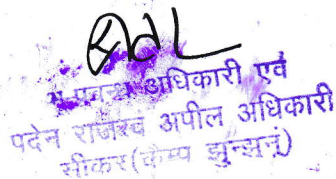 अधिकारी एवं
पदेन राजस्व अपील अधिकारी
सीकर (कैम्प झुन्झुनूं)